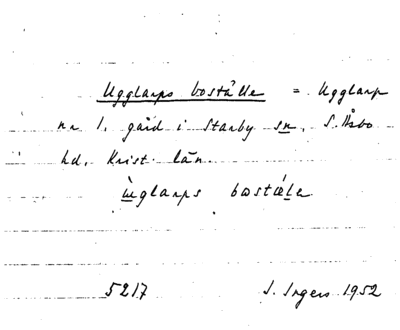 Ugglarps boställe = Ugglarp
nr 1, gård i Starby sn, S. Åsbo
hd, Krist. län.
ùglarps bostæ̀le
5217 I. Ingers 1952